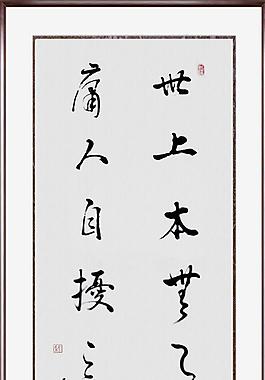 世上本無
庸人自擾之